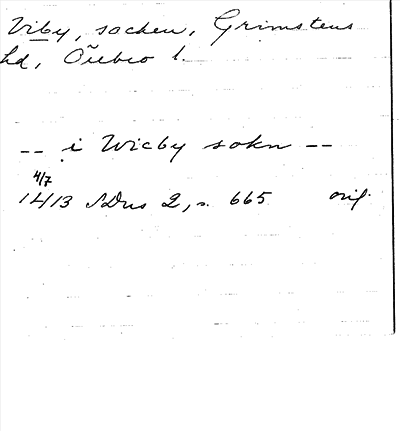 Viby, socken, Grimstens
hd, Örebro l.
-- i Wicby sokn --
4/7
1413 SDns 2, s. 665 orig.